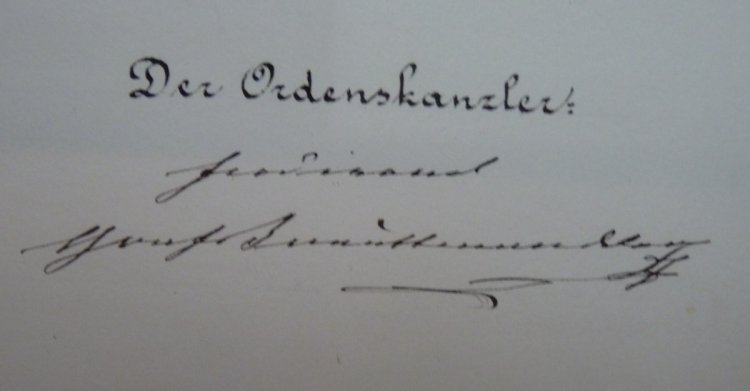 Der Ordenskanzler:
Ferdinand
Graf Trauttmansdorff